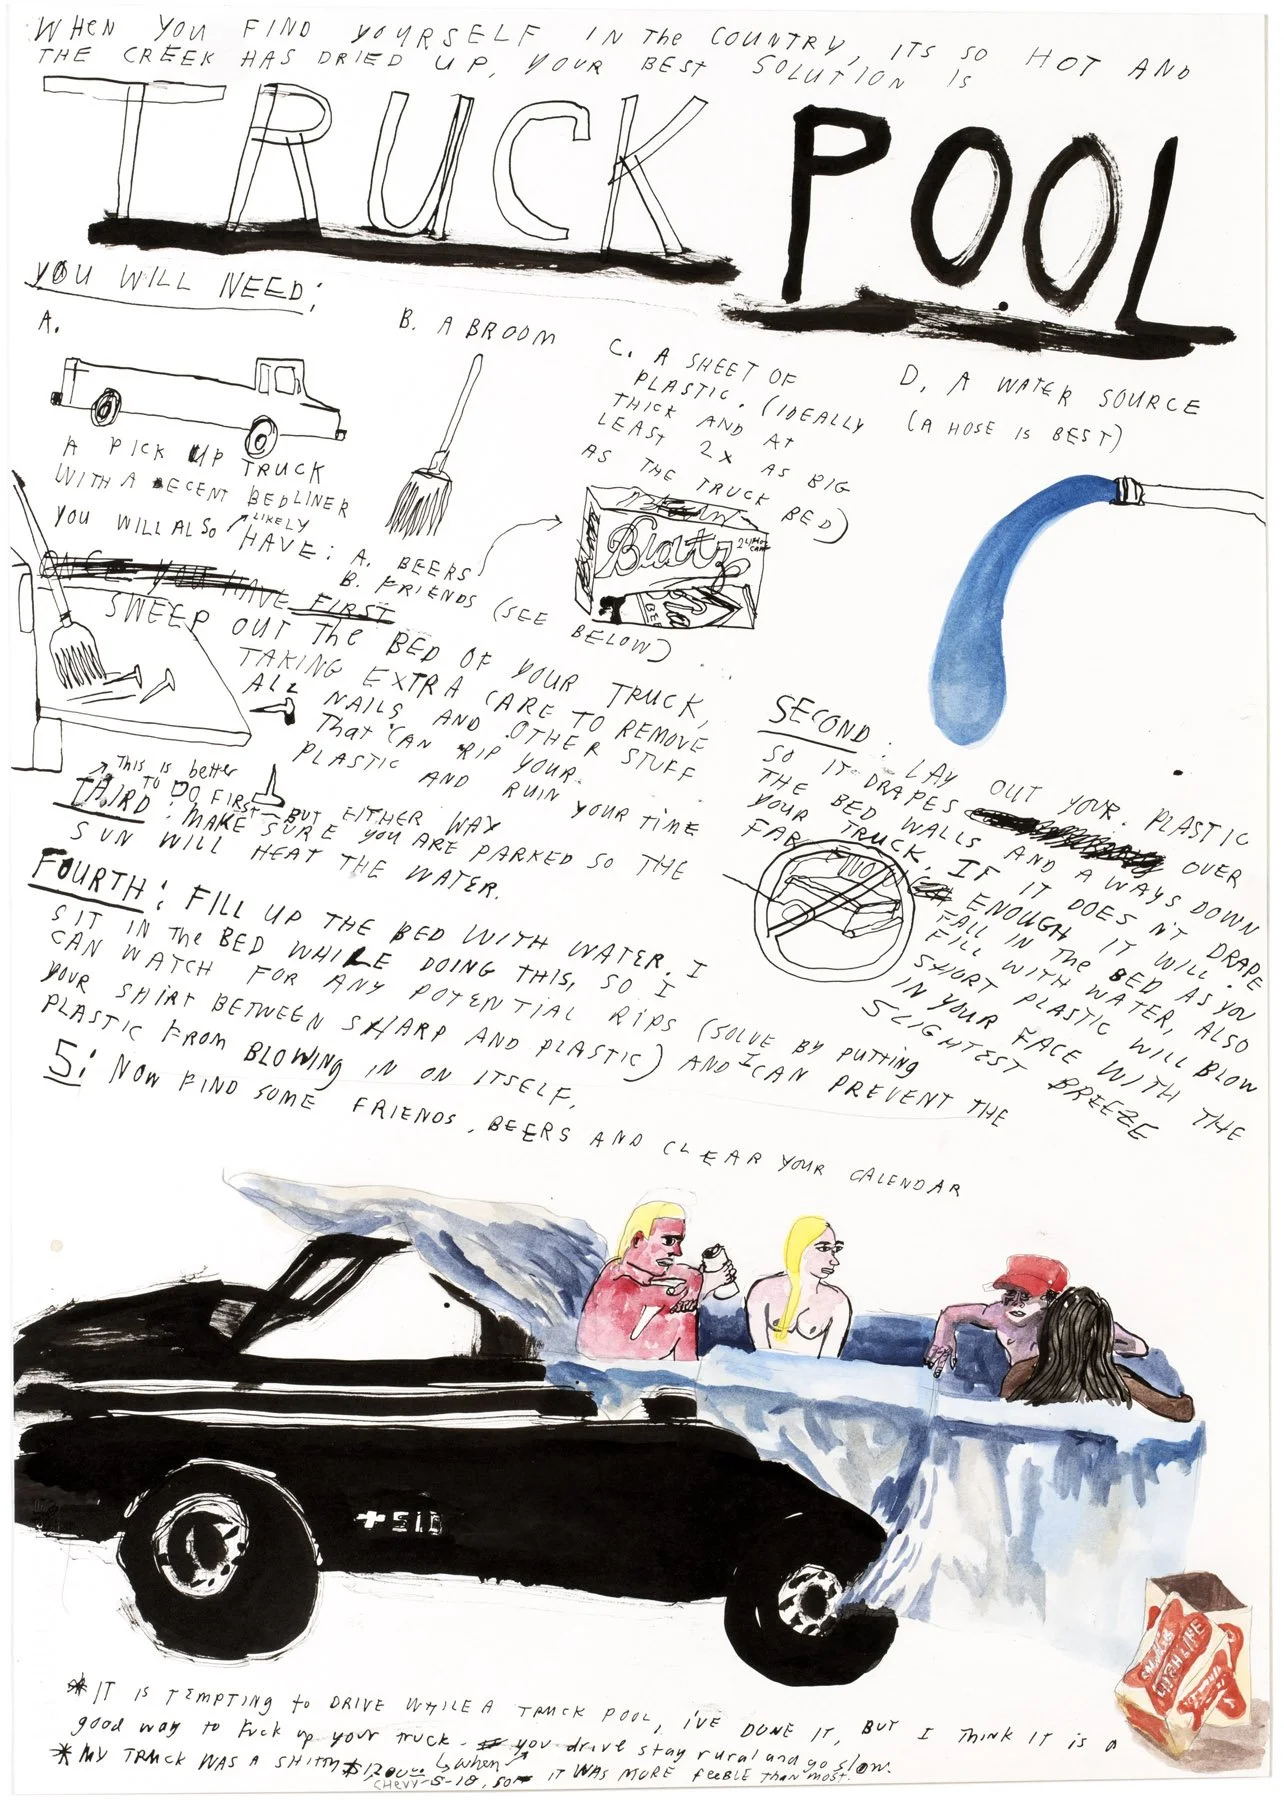 WHEN YOU FIND YOURSELF IN THE COUNTRY, ITS SO HOT AND
THE CREEK HAS DRIED UP, YOUR BEST SOLUTION IS
TRUCK POOL
YOU WILL NEED:
A.
A PICK UP TRUCK
WITH A DECENT BEDLINER
B. A BROOM
C. A SHEET OF
PLASTIC. (IDEALLY
THICK AND AT
LEAST 2X AS BIG
AS THE TRUCK BED)
D. A WATER SOURCE
(A HOSE IS BEST)
YOU WILL ALSO LIKELY
HAVE: A. BEERS
B. FRIENDS (SEE
BELOW)
Blatz
ONCE YOU HAVE FIRST
SWEEP OUT THE BED OF YOUR TRUCK,
TAKING EXTRA CARE TO REMOVE
ALL NAILS AND OTHER STUFF
THAT CAN RIP YOUR
PLASTIC AND RUIN YOUR TIME
SECOND: LAY OUT YOUR PLASTIC
SO IT DRAPES OVER
THE BED WALLS AND A WAYS DOWN
YOUR TRUCK. IF IT DOESN'T DRAPE
FAR ENOUGH IT WILL
FALL IN THE BED AS YOU
FILL WITH WATER, ALSO
SHORT PLASTIC WILL BLOW
IN YOUR FACE WITH THE
SLIGHTEST BREEZE
This is better
TO DO FIRST - BUT EITHER WAY
THIRD: MAKE SURE YOU ARE PARKED SO THE
SUN WILL HEAT THE WATER.
FOURTH: FILL UP THE BED WITH WATER. I
SIT IN THE BED WHILE DOING THIS, SO I
CAN WATCH FOR ANY POTENTIAL RIPS (SOLVE BY PUTTING
YOUR SHIRT BETWEEN SHARP AND PLASTIC) AND I CAN PREVENT THE
PLASTIC FROM BLOWING IN ON ITSELF.
5: NOW FIND SOME FRIENDS, BEERS AND CLEAR YOUR CALENDAR
S10
HIGH LIFE
* IT IS TEMPTING to DRIVE WHILE A TRUCK POOL, I'VE DONE IT, BUT I THINK IT IS A
good way to fuck up your truck - when you drive stay rural and go slow.
* MY TRUCK WAS A SHITTY $1,200.00
CHEVY-S-10, SO IT WAS MORE FEEBLE than most.